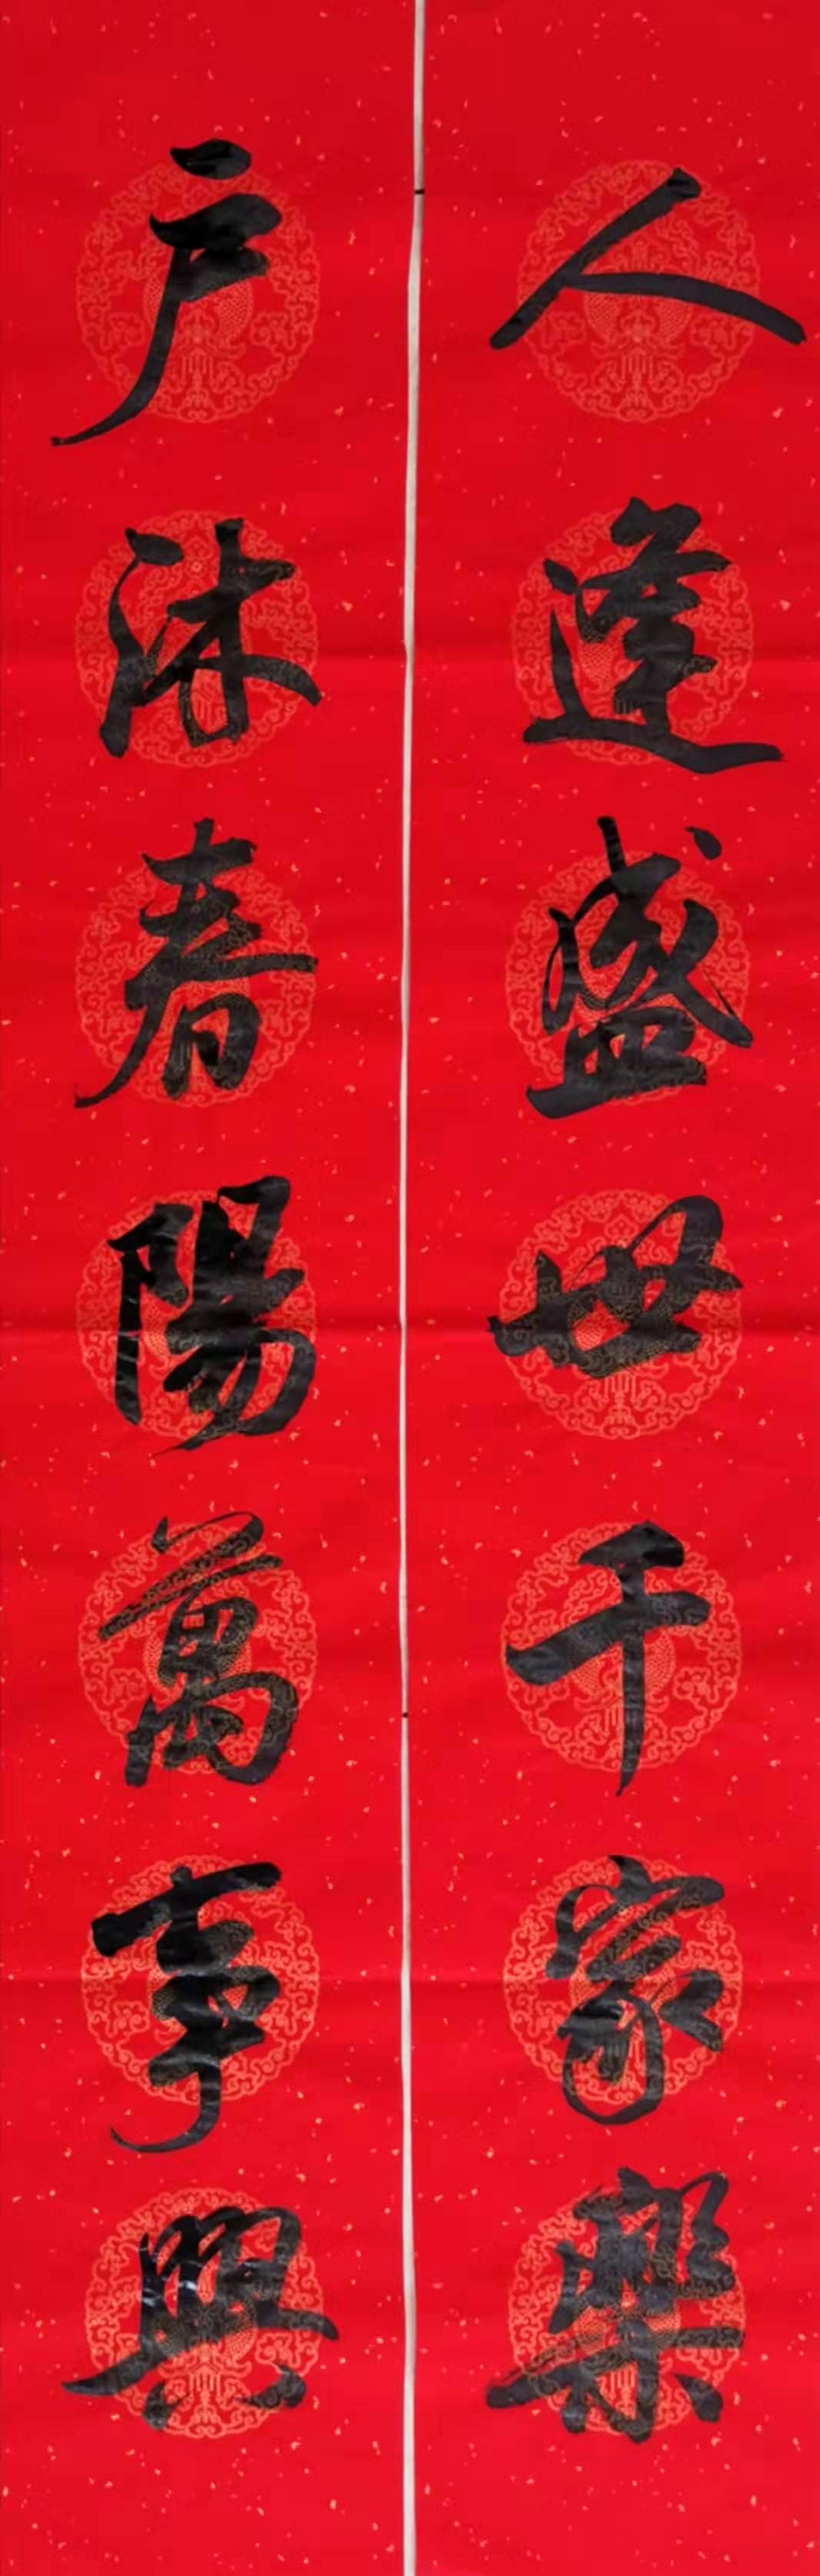 人逢盛世千家樂
户沐春陽萬事興